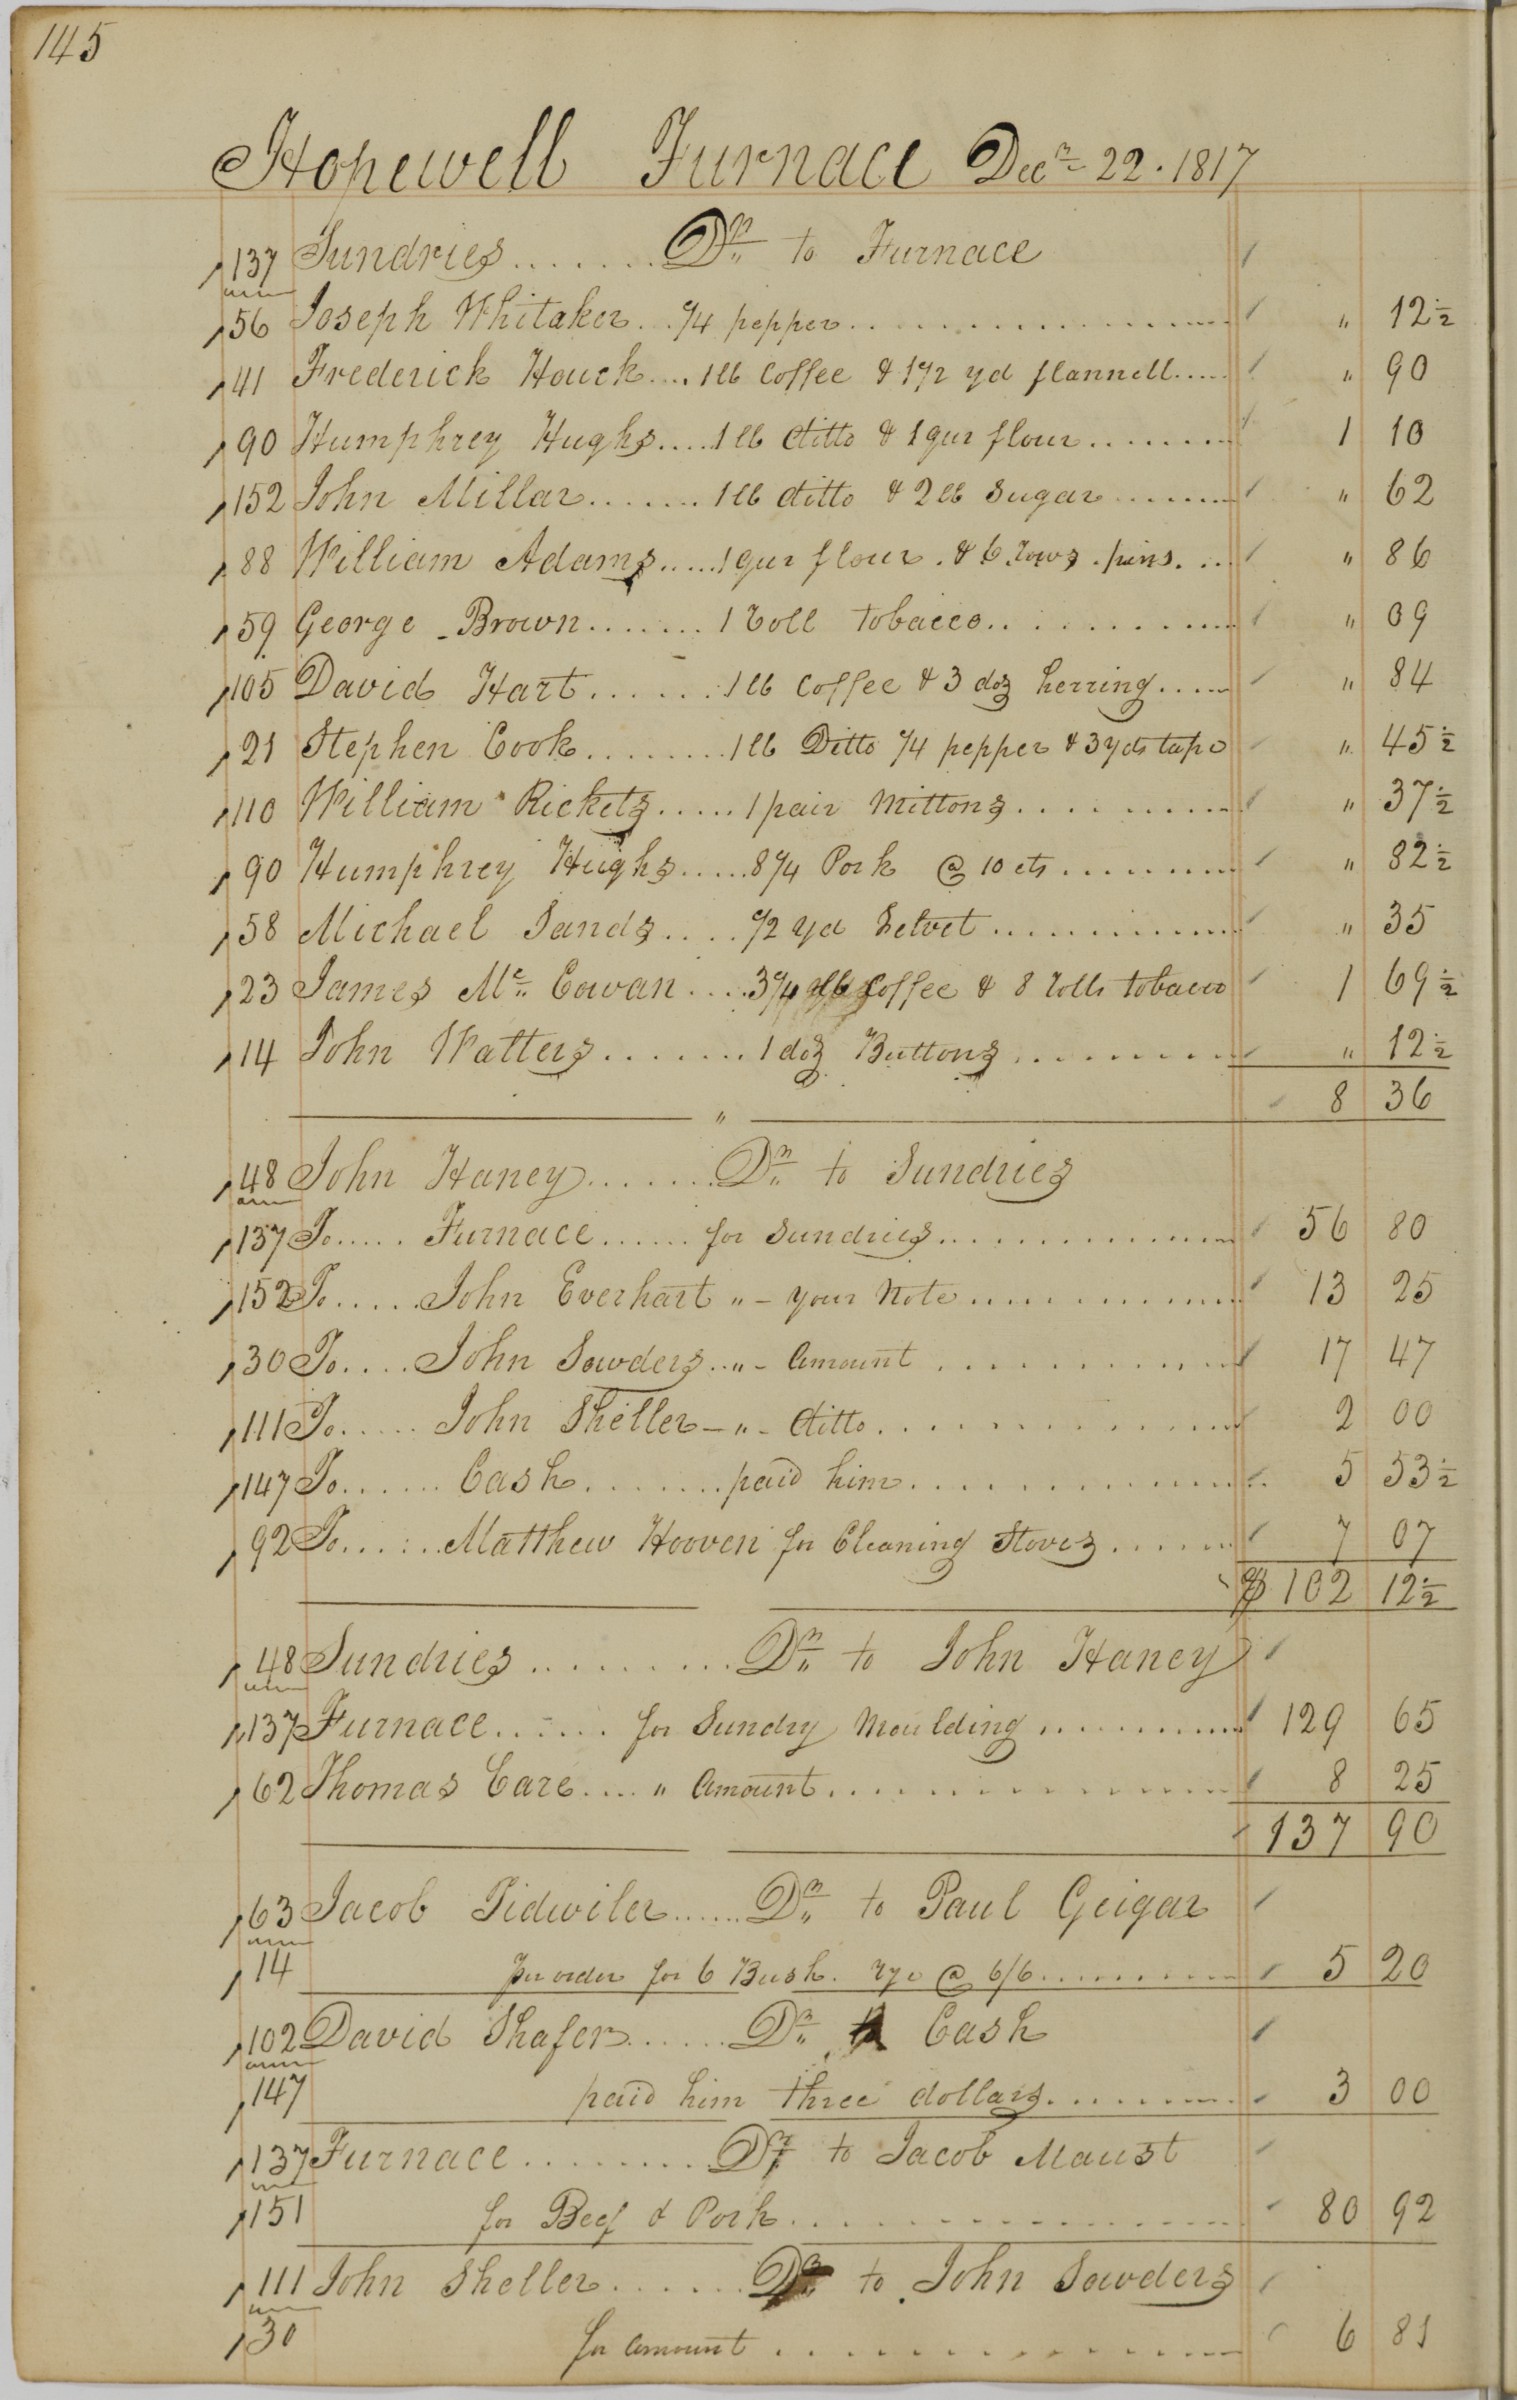 145
Hopewell Furnace Decr 22. 1817
137 Sundries ....... Dr to Furnace
56 Joseph Whitaker ... 1/4 pepper ........ " 12 1/2
41 Frederick Houck .... 1 lb Coffee & 1 1/2 yd flannell ..... " 90
90 Humphrey Hughs ..... 1 lb ditto & 1 qur flour ........ 1 10
152 John Millar ....... 1 lb ditto & 2 lb Sugar ....... " 62
88 William Adams ..... 1 qur flour . & 6 rows . pins. ... " 86
59 George Brown ....... 1 roll tobacco ........ " 09
105 David Hart ....... 1 lb Coffee & 3 doz herring ..... " 84
21 Stephen Cook ........ 1 lb Ditto 1/4 pepper & 3 yds tape " 45 1/2
110 William Rickets ..... 1 pair Mittons ......... " 37 1/2
90 Humphrey Hughs ..... 8 1/4 Pork @ 10 cts ........ " 82 1/2
58 Michael Sands ..... 1/2 yd Velvet ........ " 35
23 James Mc Cowan .... 3 3/4 lb Coffee & 8 rolls tobacco 1 69 1/2
14 John Watters ....... 1 doz Buttons ........ " 12 1/2
8 36
"
48 John Haney ....... Dr to Sundries
137 To ..... Furnace ...... for Sundries ........ 56 80
152 To ..... John Everhart " - your Note ........ 13 25
30 To .... John Sowders .. " - Amount ........ 17 47
111 To ..... John Sheller - " - ditto ........ 2 00
147 To ...... Cash ....... paid him ........ 5 53 1/2
92 To ..... Matthew Hooven for Cleaning Stoves ...... 7 07
$ 102 12 1/2
48 Sundries ......... Dr to John Haney
137 Furnace ...... for Sundry Moulding ........ 129 65
62 Thomas Care .... " Amount ........ 8 25
137 90
63 Jacob Tidwiler ...... Dr to Paul Geigar
14 per order for 6 Bush. rye @ 6/6 ........ 5 20
102 David Shafer ...... Dr to Cash
147 paid him three dollars ........ 3 00
137 Furnace ........ Dr to Jacob Maust
151 for Beef & Pork ........ 80 92
111 John Sheller ....... Dr to John Sowders
30 for amount ........ 6 81